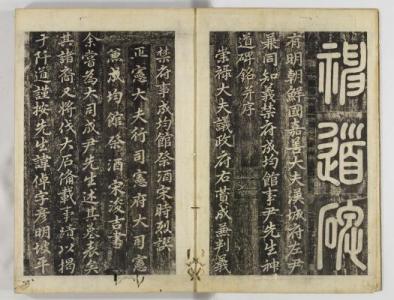 神道碑
有明朝鮮國嘉善大夫漢城府左尹
兼同知義禁府成均館事尹先生神
道碑銘并序
崇祿大夫議政府右贊成兼判義
禁府事成均館祭酒宋時烈撰
正憲大夫行司憲府大司憲
兼成均館祭酒宋浚吉書
余嘗為大司成尹先生述其墓表矣
其諸裔又將伐大石備載事績以揭
于阡道謹按先生諱倬字彥明坡平